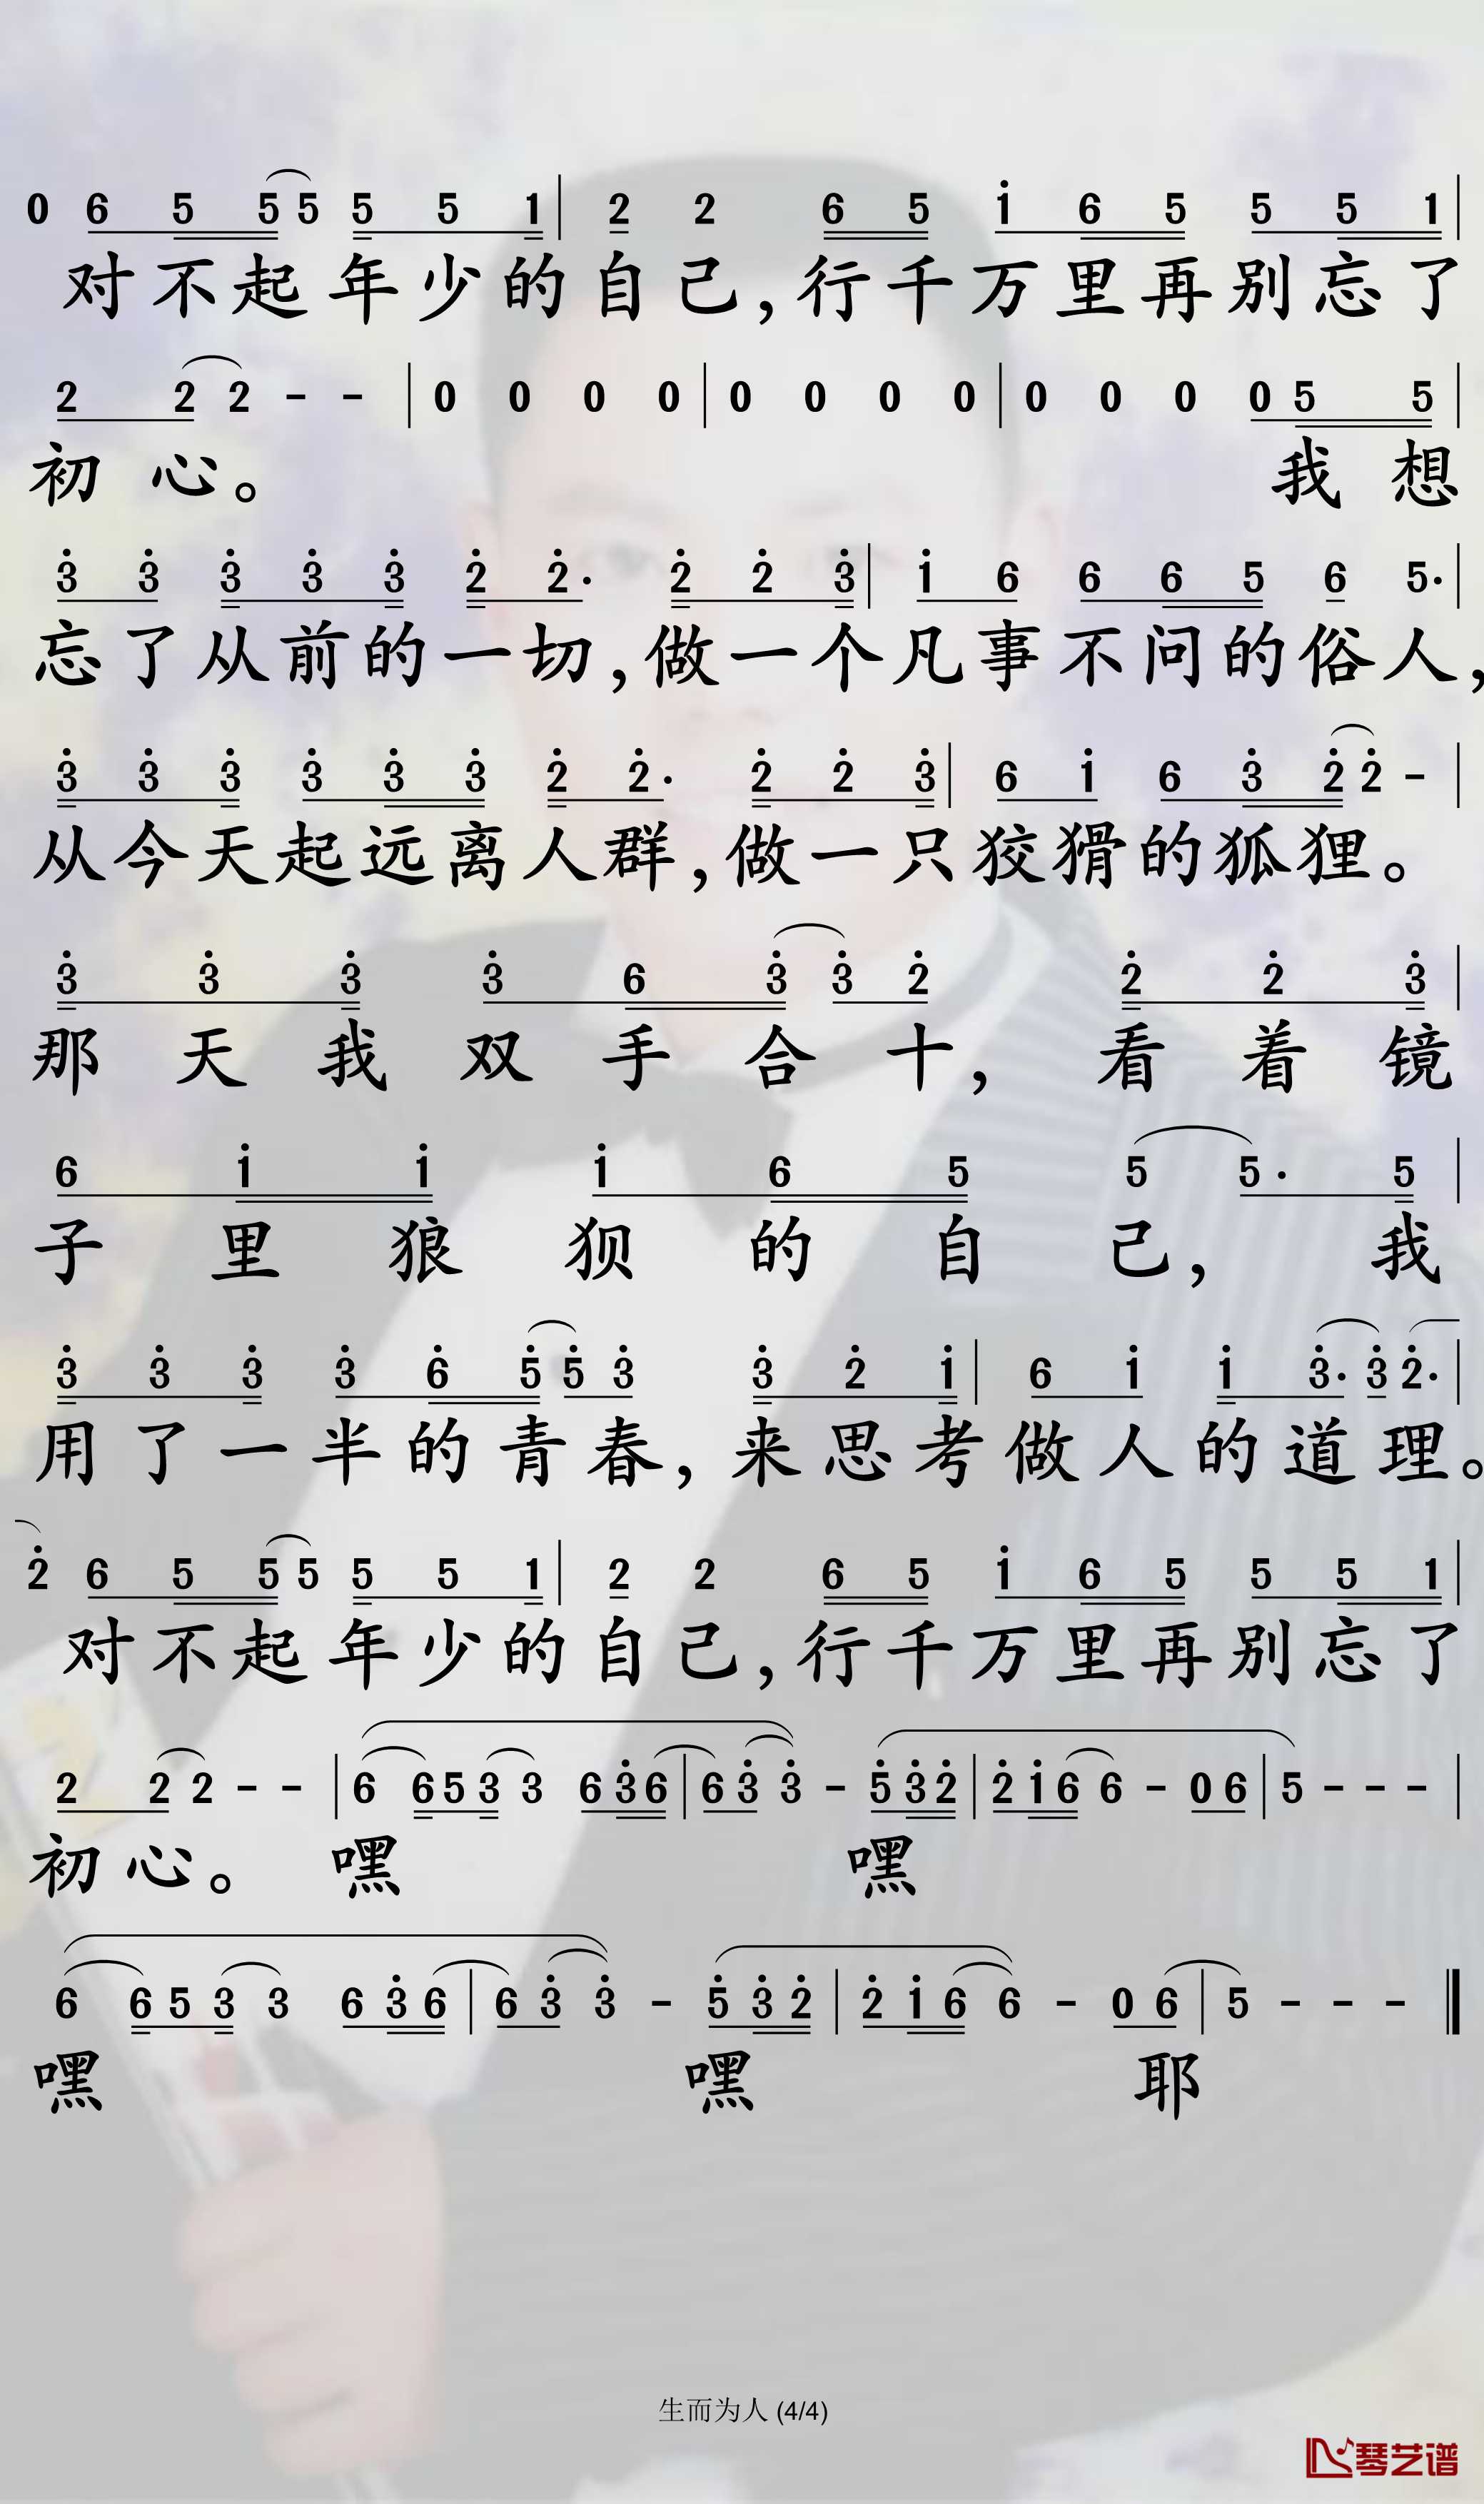 0 6 5 5 5 5 5 1 | 2 2 6 5 1̇ 6 5 5 5 1 |
对不起年少的自己,行千万里再别忘了
2 2 2 - - | 0 0 0 0 | 0 0 0 0 | 0 0 0 0 5 5 |
初心。 我想
3̇ 3̇ 3̇ 3̇ 3̇ 2̇ 2̇· 2̇ 2̇ 3̇ | 1̇ 6 6 6 5 6 5· |
忘了从前的一切,做一个凡事不问的俗人,
3̇ 3̇ 3̇ 3̇ 3̇ 3̇ 2̇ 2̇· 2̇ 2̇ 3̇ | 6 1̇ 6 3̇ 2̇ 2̇ - |
从今天起远离人群,做一只狡猾的狐狸。
3̇ 3̇ 3̇ 3̇ 6 3̇ 3̇ 2̇ 2̇ 2̇ 3̇ |
那天我双手合十,看着镜
6 1̇ 1̇ 1̇ 6 5 5 5· 5 |
子里狼狈的自己,我
3̇ 3̇ 3̇ 3̇ 6̇ 5̇ 5̇ 3̇ 3̇ 2̇ 1̇ | 6 1̇ 1̇ 3̇· 3̇ 2̇· |
用了一半的青春,来思考做人的道理。
2̇ 6 5 5 5 5 5 1 | 2 2 6 5 1̇ 6 5 5 5 1 |
对不起年少的自己,行千万里再别忘了
2 2 2 - - | 6 6 5 3 3 6 3̇ 6 | 6 3̇ 3̇ - 5̇ 3̇ 2̇ | 2̇ 1̇ 6 6 - 0 6 | 5 - - - |
初心。嘿 嘿
6 6 5 3 3 6 3̇ 6 | 6 3̇ 3̇ - 5̇ 3̇ 2̇ | 2̇ 1̇ 6 6 - 0 6 | 5 - - - ‖
嘿 嘿 耶
生而为人 (4/4)
琴艺谱